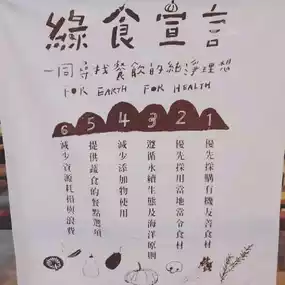 綠食宣言
一同尋找餐飲的純淨理想
FOR EARTH FOR HEALTH
1 優先採購有機友善食材
2 優先採用當地當令食材
3 遵循永續生態及海洋原則
4 減少添加物使用
5 提供蔬食的餐點選項
6 減少資源耗損與浪費